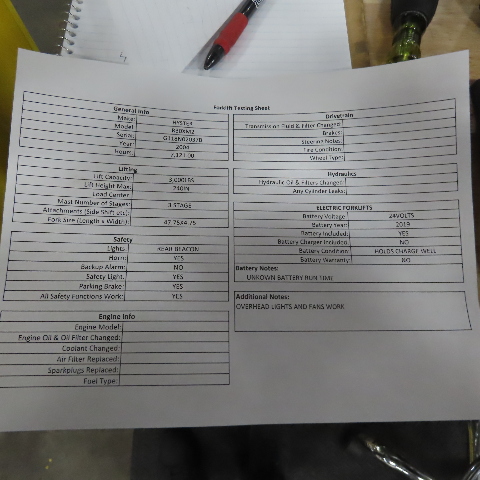 Forklift Testing Sheet
General Info
Make: HYSTER
Model:
Serial:
Year: 2004
Hours:
Lifting
Lift Capacity: 3,000LBS
Lift Height Max: 240IN
Load Center:
Mast Number of Stages: 3 STAGE
Attachments (Side Shift etc):
Fork Size (Length x Width): 47.75X4.75
Safety
Lights: REAR BEACON
Horn: YES
Backup Alarm: NO
Safety Light: YES
Parking Brake: YES
All Safety Functions Work: YES
Engine Info
Engine Model:
Engine Oil & Oil Filter Changed:
Coolant Changed:
Air Filter Replaced:
Sparkplugs Replaced:
Fuel Type:
Drivetrain
Transmission Fluid & Filter Changed:
Brakes:
Steering Notes:
Tire Condition:
Wheel Type:
Hydraulics
Hydraulic Oil & Filters Changed:
Any Cylinder Leaks:
ELECTRIC FORKLIFTS
Battery Voltage: 24VOLTS
Battery Year: 2019
Battery Included: YES
Battery Charger Included: NO
Battery Condition: HOLDS CHARGE WELL
Battery Warranty: NO
Battery Notes:
UNKOWN BATTERY RUN TIME
Additional Notes:
OVERHEAD LIGHTS AND FANS WORK